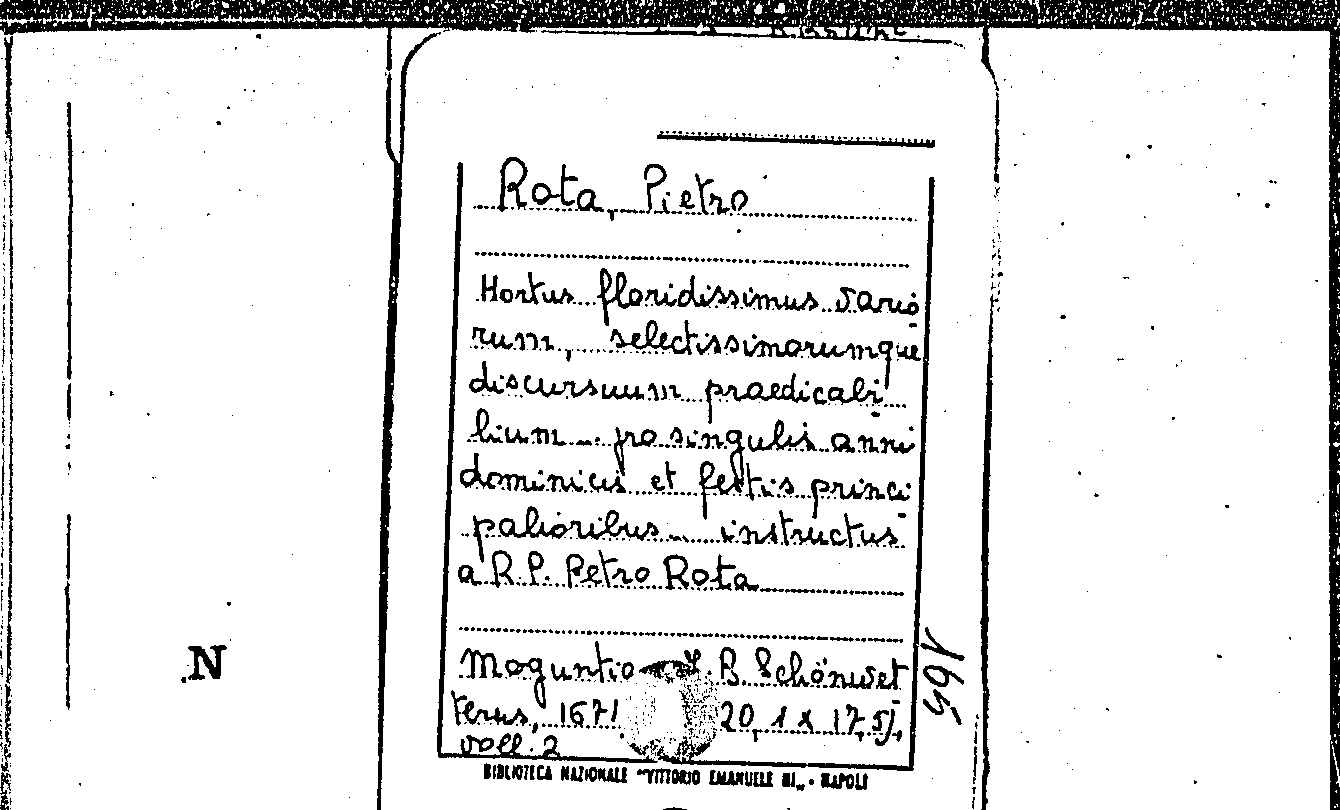 Rota, Pietro
Hortus floridissimus vario-
rum, selectissimorumque
discursuum praedicabi-
lium ... pro singulis anni
dominicis et festis princi-
palioribus ... instructus
a R. P. Petro Rota
Moguntiae J. B. Schönwet-
terus, 1671 20, 1 x 17,5),
voll. 2
165
N
BIBLIOTECA NAZIONALE "VITTORIO EMANUELE III„ - NAPOLI